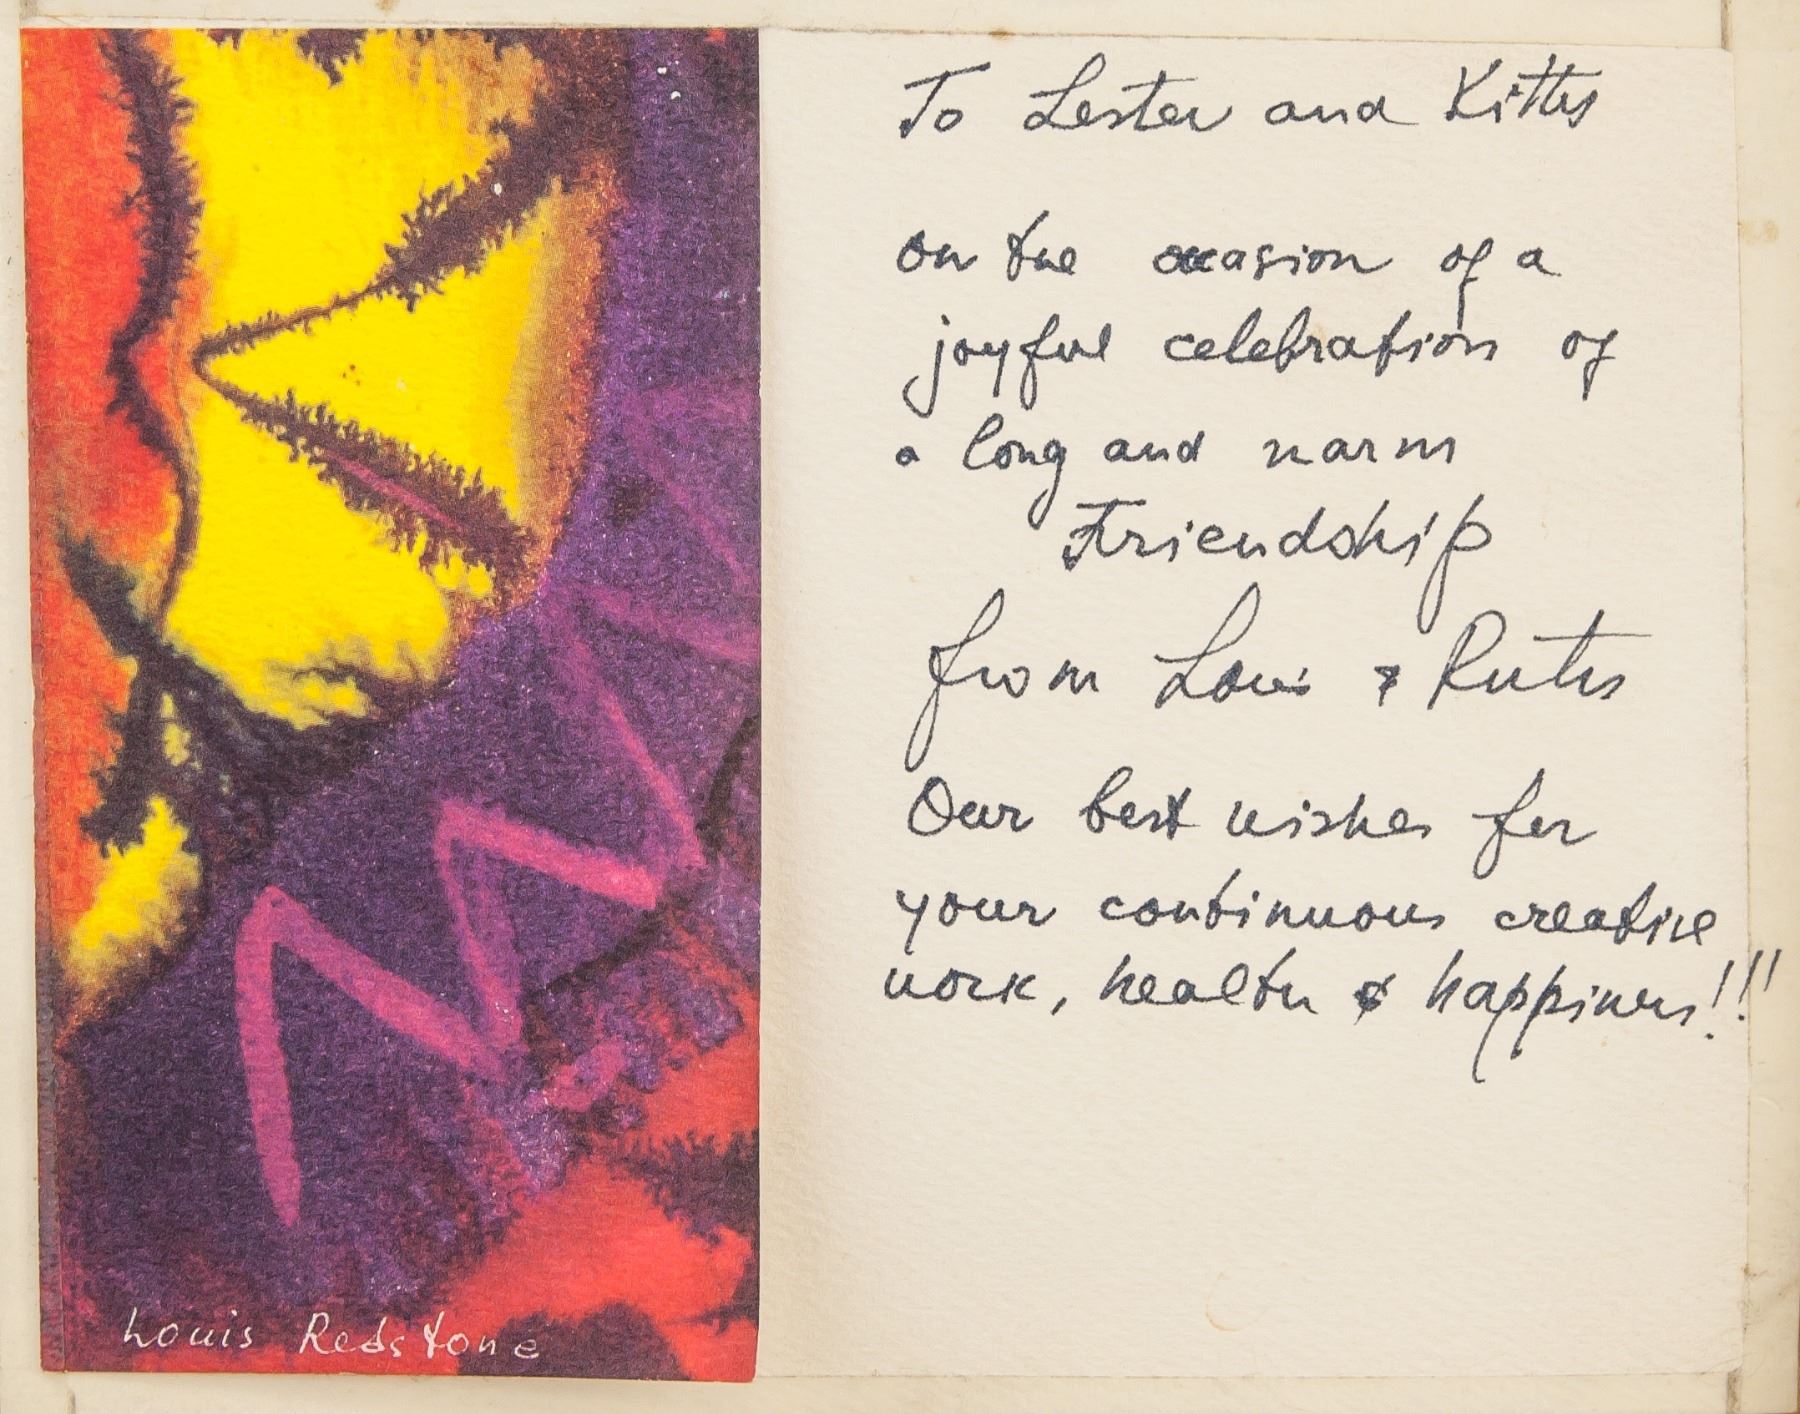 To Lester and Kitty
on the occasion of a
joyful celebration of
a long and warm
Friendship
from Louis & Ruth
Our best wishes for
your continuous creative
work, health & happiness!!!
Louis Redstone